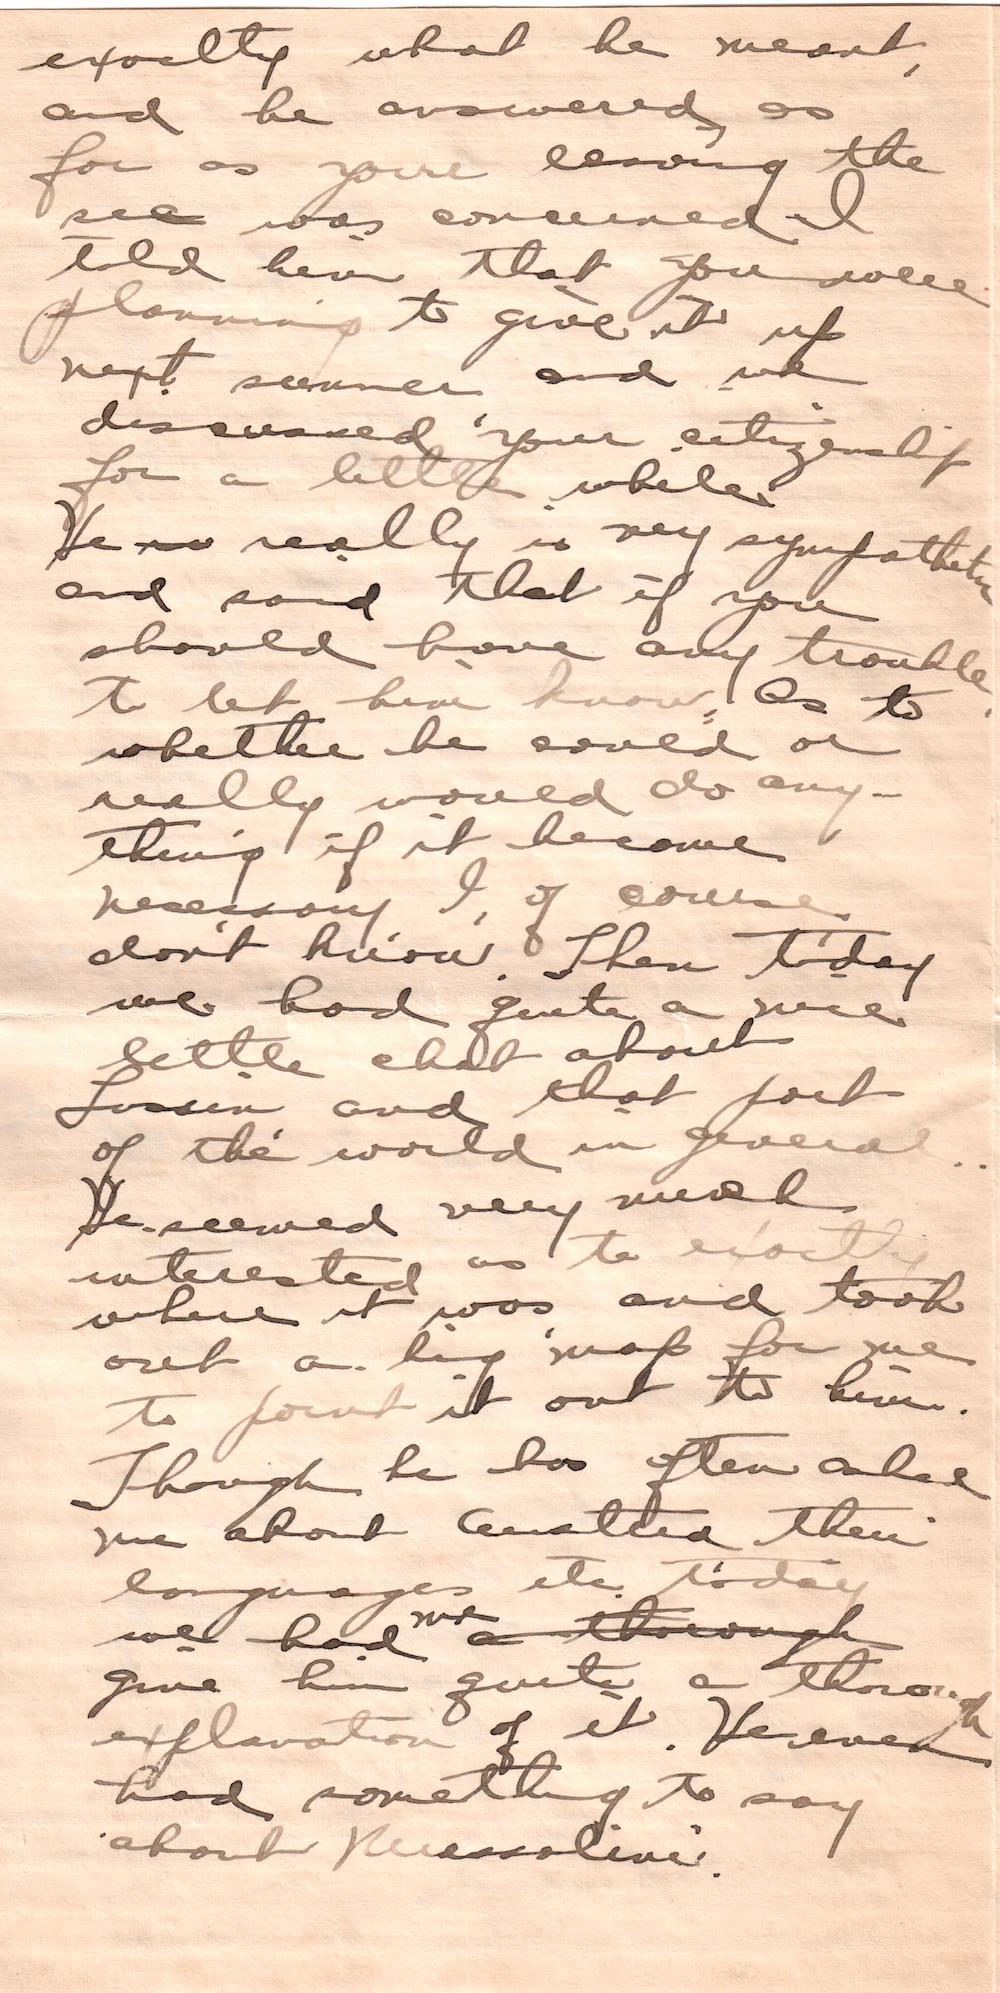 exactly what he meant,
and he answered, as
far as your leaving the
sea was concerned I
told him that you were
planning to give it up
next summer and we
discussed your citizenship
for a little while.
He really is very sympathetic
and said that if you
should have any trouble
to let him know. As to
whether he could or
really would do any-
thing if it became
necessary I, of course
don't know. Then today
we had quite a nice
little chat about
Lussin and that part
of the world in general..
He seemed very much
interested as to exactly
where it was and took
out a big map for me
to point it out to him.
Though he has often asked
me about Austria their
languages etc. today
we had me a thorough
give him quite a thorough
explanation of it. He even
had something to say
about Mussolini.